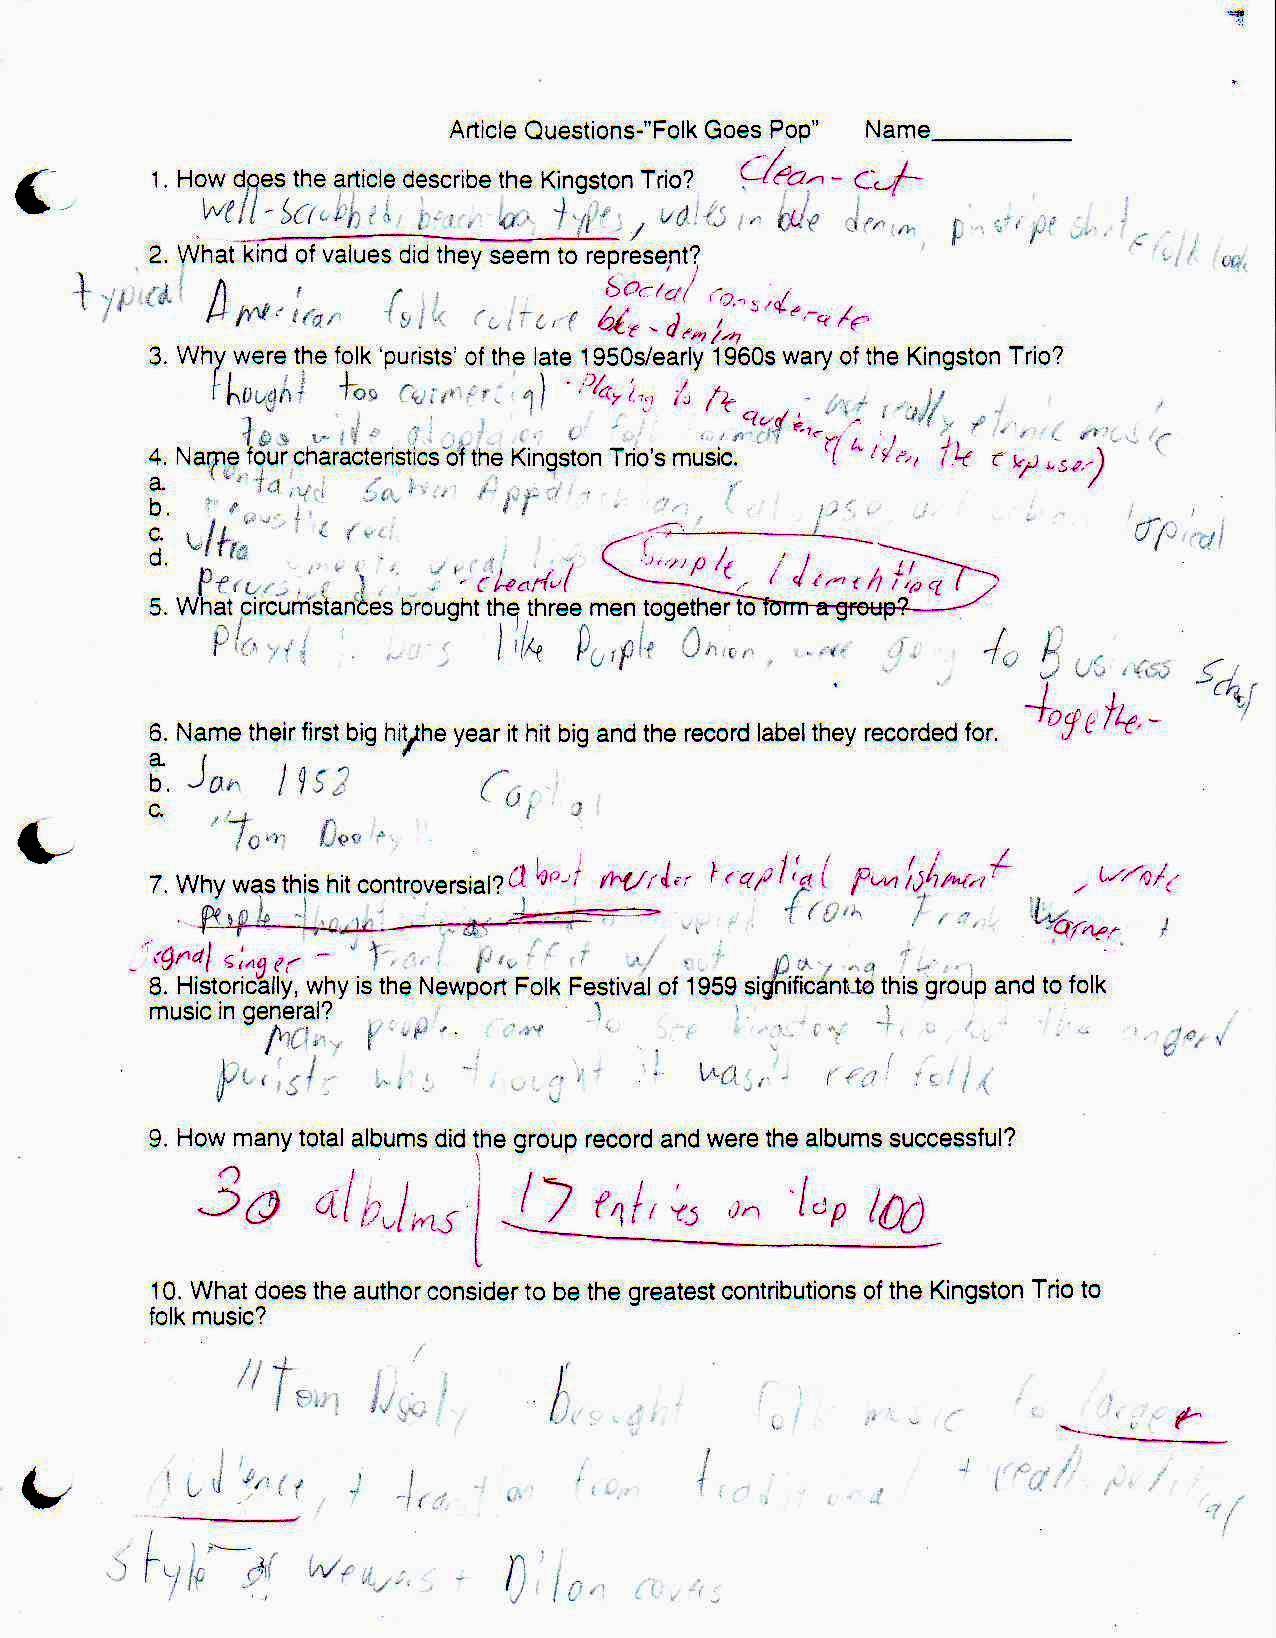 Article Questions-"Folk Goes Pop" Name
1. How does the article describe the Kingston Trio? Clean-cut
well-scrubbed, beach boy types, in denim, pinstripe shirt folk look
2. What kind of values did they seem to represent?
typical American folk culture Social considerate
3. Why were the folk 'purists' of the late 1950s/early 1960s wary of the Kingston Trio?
thought too commercial Playing to the audience not really ethnic music
too wide of folk (widen the exposer)
4. Name four characteristics of the Kingston Trio's music.
a. Contained
b. Acoustic Tropical
c. Ultra vocal
d. - clearful Simple,
5. What circumstances brought the three men together to form a group?
Played in bars like Purple Onion, were going to Business School
together-
6. Name their first big hit, the year it hit big and the record label they recorded for.
a.
b. Jan 1958 Capital
c.
"Tom Dooley"
7. Why was this hit controversial? about murder + captial punishment , wrote
People thought from Frank Warner +
signal singer - profit w/out paying them
8. Historically, why is the Newport Folk Festival of 1959 significant to this group and to folk
music in general?
Many people came to see kingston trio, but the angerd
purists who thought it wasn't real folk
9. How many total albums did the group record and were the albums successful?
30 albums | 17 entries on top 100
10. What does the author consider to be the greatest contributions of the Kingston Trio to
folk music?
"Tom Dooly brought folk music to larger
audience, + from traditional + political
style of Weavers + Dilon covers